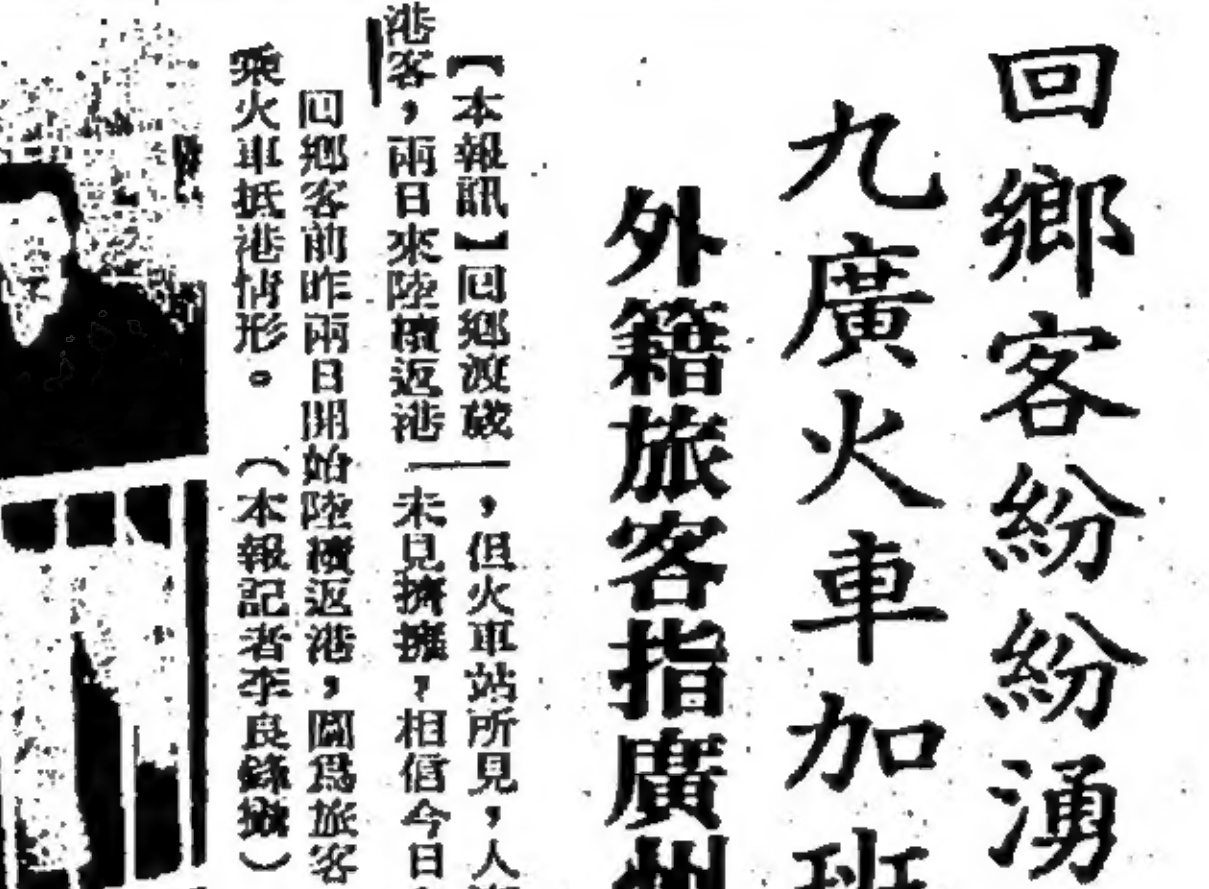 回鄉客紛紛湧
九廣火車加班
外籍旅客指廣州
【本報訊】回鄉渡歲
港客，兩日來陸續返港
，但火車站所見，人
未見擠擁，相信今日
回鄉客前昨兩日開始陸續返港，圖爲旅客
乘火車抵港情形。　（本報記者李良錦攝）